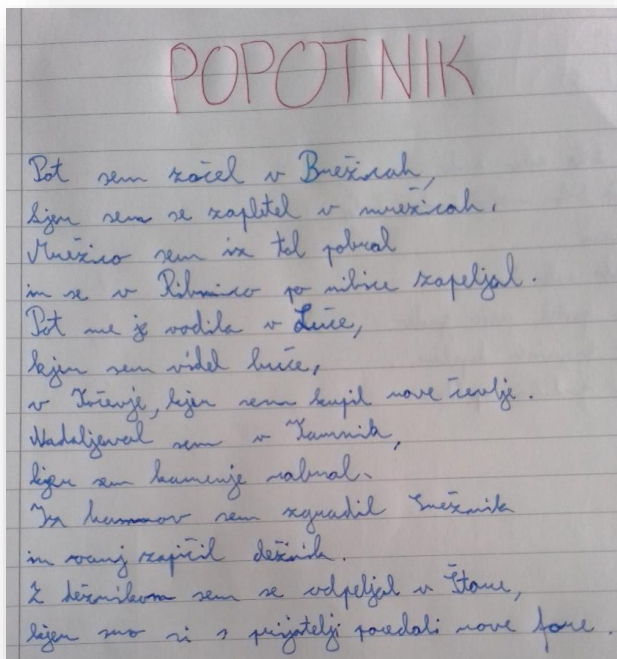 POPOTNIK
Pot sem začel v Brežicah,
kjer sem se zapletel v mrežicah.
Mrežico sem iz tal pobral
in se v Ribnico po ribice zapeljal.
Pot me je vodila v Luče,
kjer sem videl luče,
v Kočevje, kjer sem kupil nove čevlje.
Nadaljeval sem v Kamnik,
kjer sem kamenje nabral.
Iz kamnov sem zgradil Snežnik
in vanj zapičil dežnik.
Z dežnikom sem se odpeljal v Štore,
kjer smo si s prijatelji povedali nove fore.